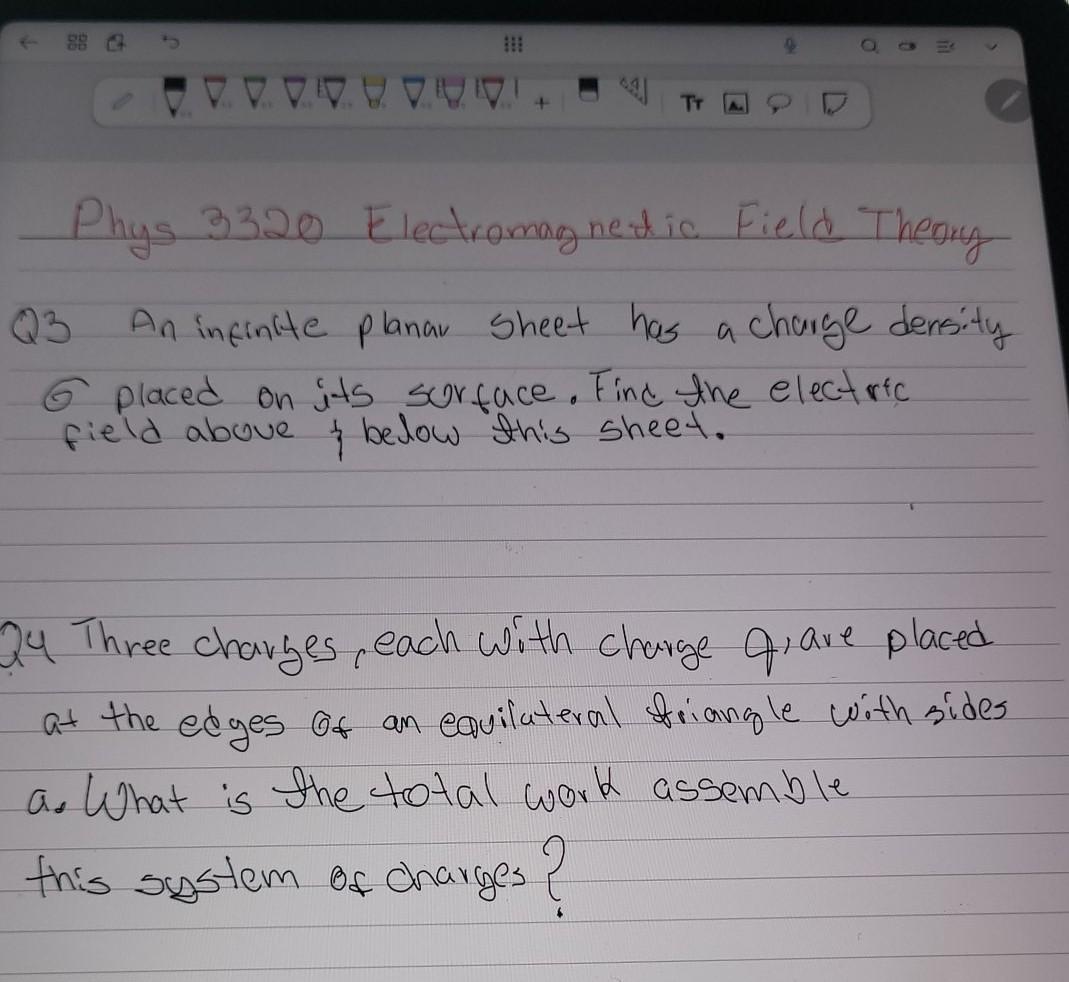 Tr
Phys 3320 Electromagnetic Field Theory
Q3 An infinite planar sheet has a charge density
σ placed on its scrface. Find the electric
field above & below this sheet.
Q4 Three charges, each with charge q, are placed
at the edges of an equilateral triangle with sides
a. What is the total work assemble
this system of charges?